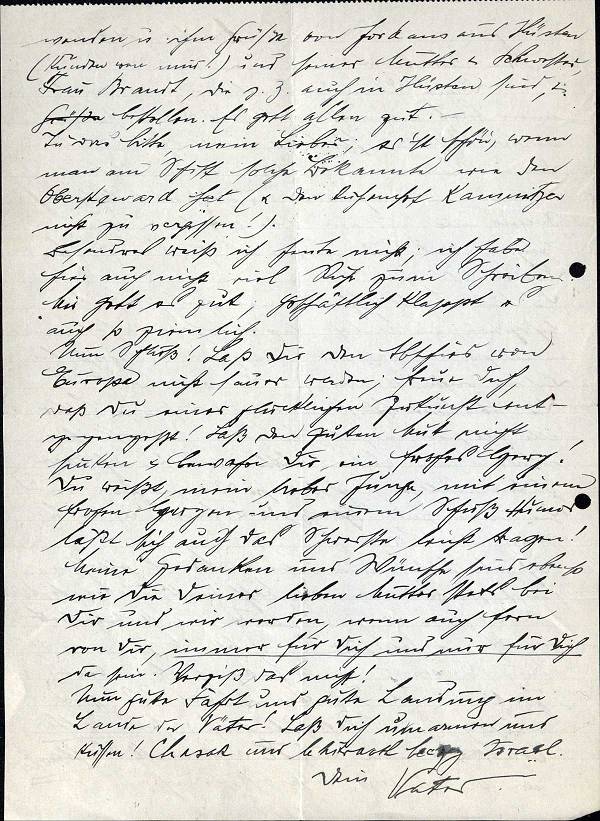 wenden u. ihm Grüße von Jordans aus Hüsten
(Kunden von mir!) und seiner Mutter u. Schwester,
Frau Brandt, die z. Z. auch in Hüsten sind, zu
bestellen. Es geht allen gut. —
Tu das bitte, mein Lieber; es ist schön, wenn
man am Schiff solche Bekannte wie den
Obersteward hat (u. den Kamnitzer
nicht zu vergessen!).
Besonderes weiß ich heute nicht; ich habe
hier auch nicht viel Ruhe zum Schreiben.
Mir geht es gut; geschäftlich klappt es
auch so ziemlich.
Nun Schluß! Laß Dir den Abschied von
Europa nicht sauer werden; freue Dich
daß Du einer glücklichen Zukunft ent-
gegengehst! Laß den guten Mut nicht
sinken & bewahre Dir ein frohes Herz!
Du weißt, mein lieber Junge, mit einem
frohen Herzen und einem Schuß Humor
läßt sich auch das Schwerste leicht tragen!
Meine Gedanken und Wünsche sind ebenso
wie die Deiner lieben Mutter stets bei
Dir und wir werden, wenn auch fern
von Dir, immer für Dich und nur für Dich
da sein. Vergiß das nicht!
Nun gute Fahrt und gute Landung im
Lande der Väter! Laß Dich umarmen und
küssen! Chasak Israel.
Dein Vater